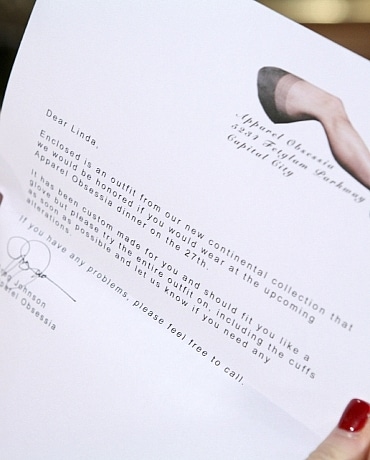 Apparel Obsessia
5237 Fetglam Parkway
Capital City
Dear Linda,
Enclosed is an outfit from our new continental collection that
we would be honored if you would wear at the upcoming
Apparel Obsessia dinner on the 27th.
It has been custom made for you and should fit you like a
glove but please try the entire outfit on, including the cuffs
as soon as possible and let us know if you need any
alterations.
If you have any problems, please feel free to call.
Johnson
Obsessia